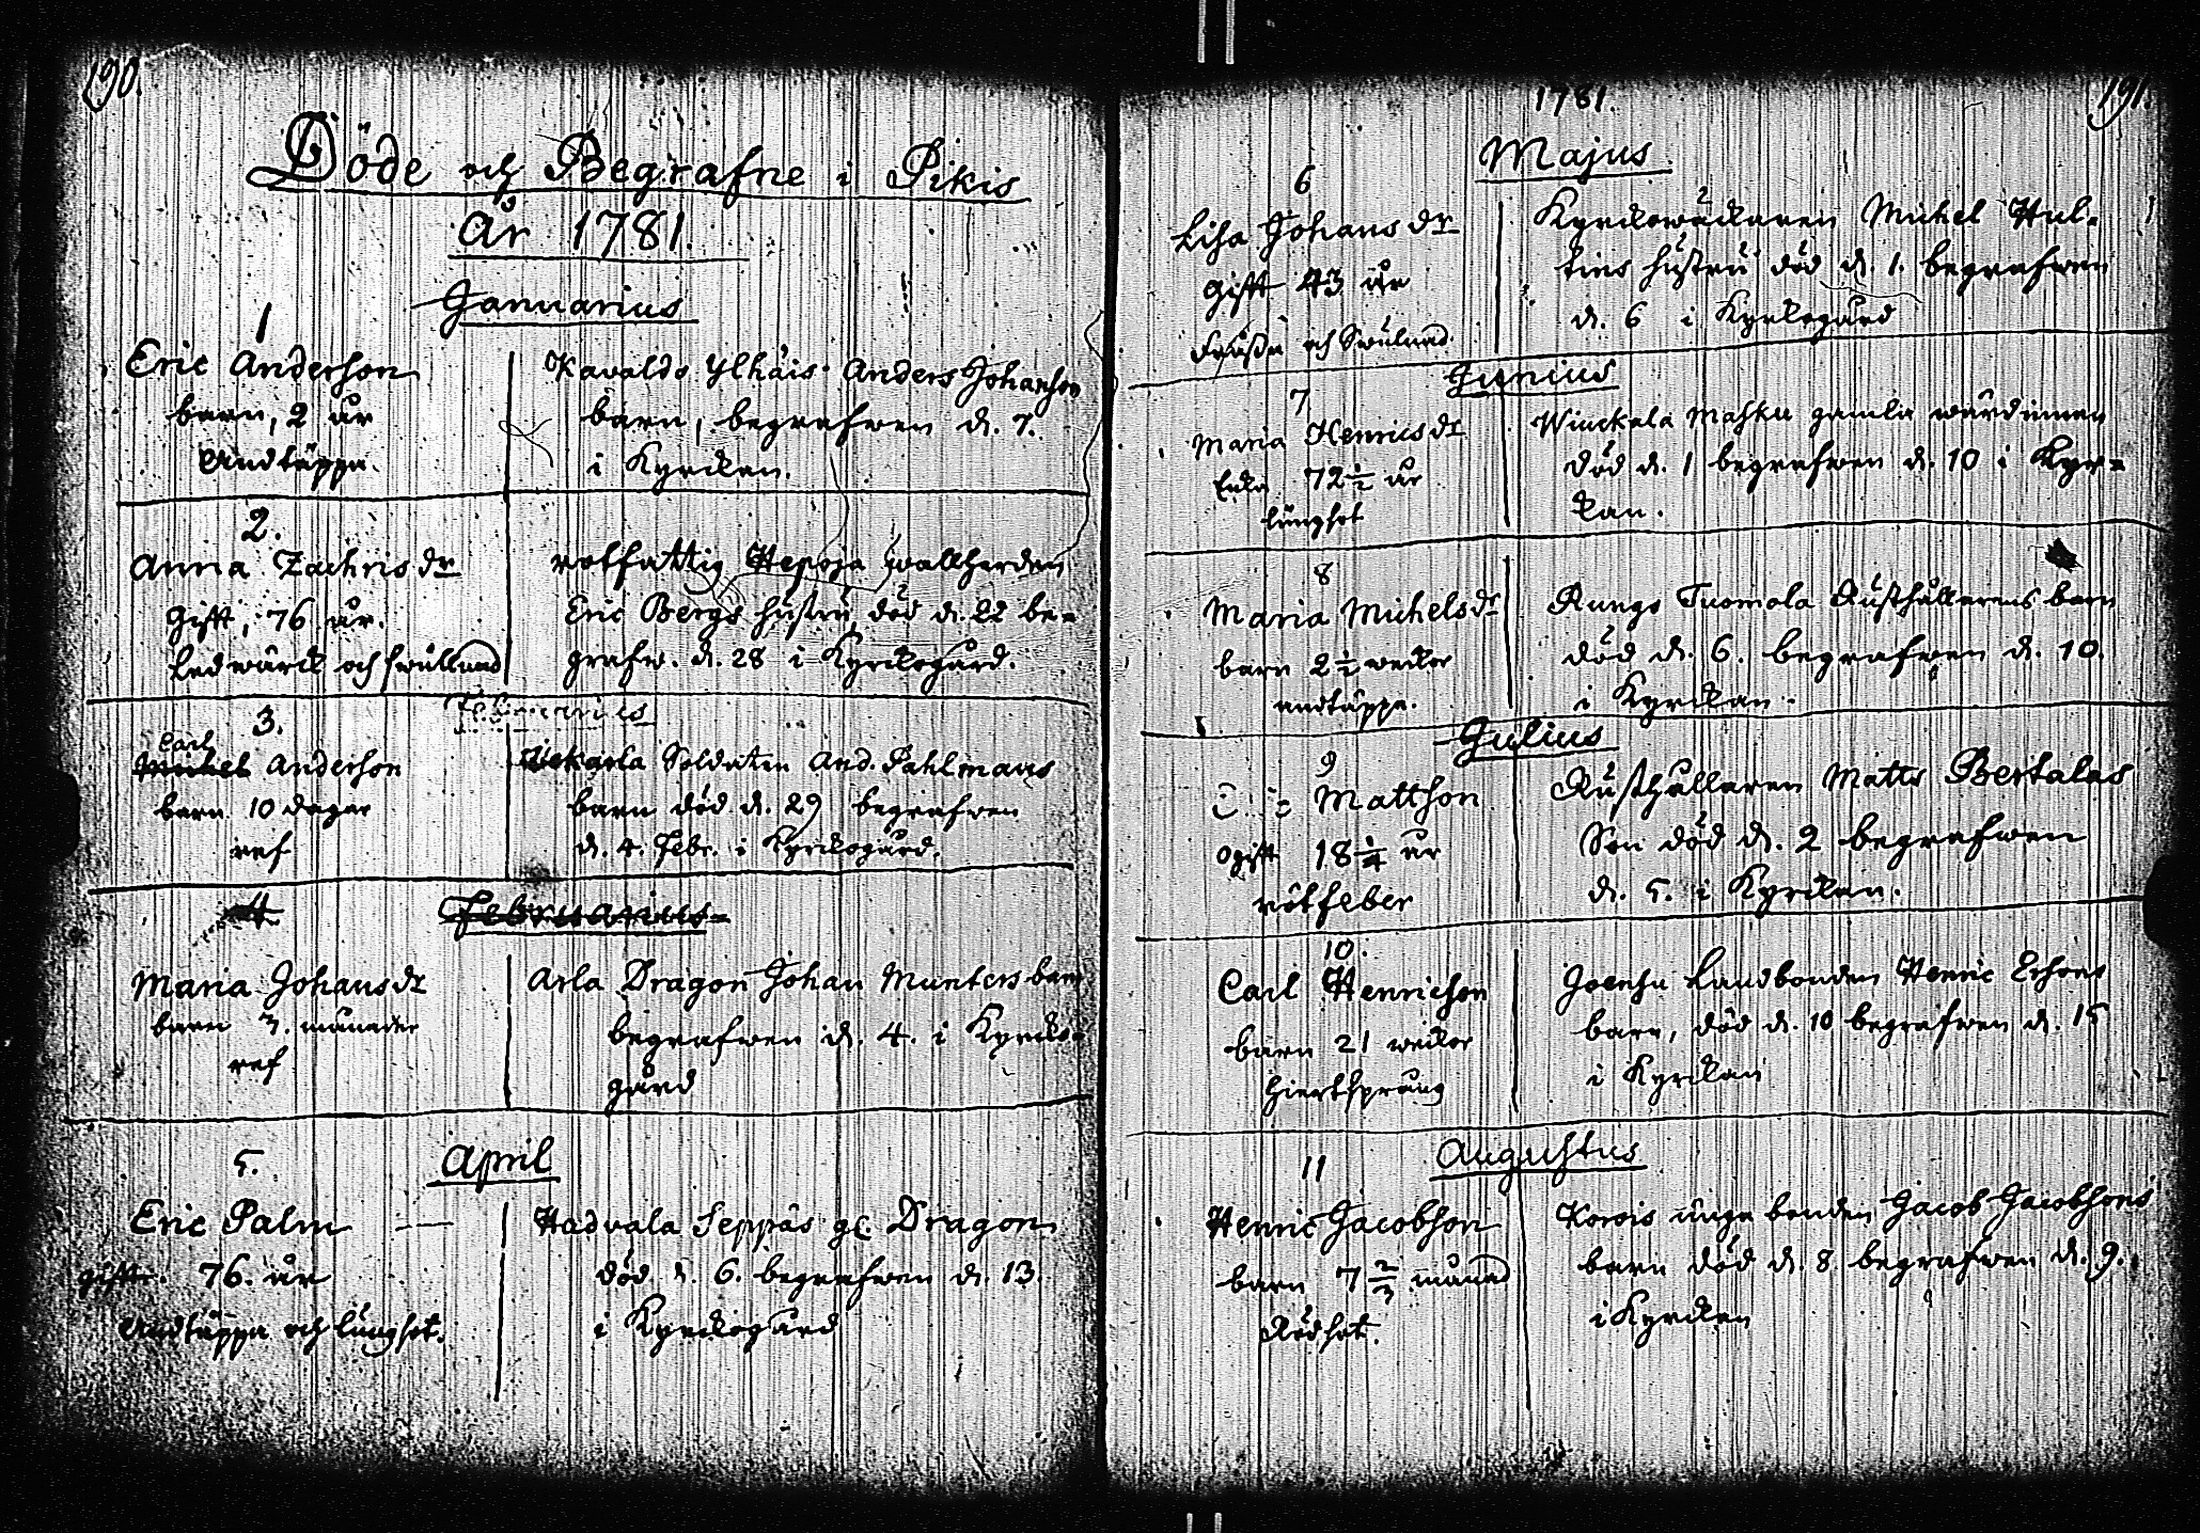 190.
Döde och Begrafne i Pikis
År 1781.
Januarius
1
Eric Anderson
barn, 2 år
Andtäppa.
Kavaldo Ylhäis Anders Johanson
barn, begrafwen d. 7.
i Kyrckan.
2.
Anna Zachris dr
Gift, 76 år.
Ledwärck och swullnad
rotfattig Hepoja wallherden
Eric Bergs hustru död d. 22 be-
grafw. d. 28 i Kyrckogård.
Februarius
3.
Carl
Michel Anderson
barn 10 dagar
ref
Soldaten And. Pahlmans
barn död d. 29 begrafwen
d. 4. Febr. i Kyrckogård.
4
Februarius
Maria Johans dr
barn 3. månader
ref
Arla Dragon Johan Munters barn
begrafwen d. 4. i Kyrcko-
gård
5.
April
Eric Palm
gift. 76. år
Andtäppa och lungsot.
Hadvala Seppäs gl. Dragon
död d. 6. begrafwen d. 13.
i Kyrckogård
191.
1781.
Majus
6
Lisa Johans dr
Gift 43 år
och Swulnad.
Kyrckowäckaren Michel Hul-
tins hustru död d. 1. begrafwen
d. 6 i Kyrkogård
Junius
7
Maria Henrics dr
Enka 72 1/2 år
lungsot
Winckela Masku gamla wärdinnan
död d. 1 begrafwen d. 10 i Kyr-
kan.
8
Maria Michels dr
barn 2 1/2 weckor
andtäppa.
Rungo Tuomola Rusthållarens barn
död d. 6. begrafwen d. 10.
i Kyrckan.
Julius
9
Mattson
ogift 18 1/4 år
rötfeber
Rusthållaren Matts Bertalas
Son död d. 2 begrafwen
d. 5. i Kyrckan.
10.
Carl Henricson
barn 21 weckor
Hiertsprång
Joensu Landbonden Henric Ersons
barn, död d. 10 begrafwen d. 15
i Kyrckan
11
Augustus
Henric Jacobson
barn 7 2/3 månad
Rödsot.
Korois unga bonden Jacob Jacobsons
barn död d. 8. begrafwen d. 9.
i Kyrckan